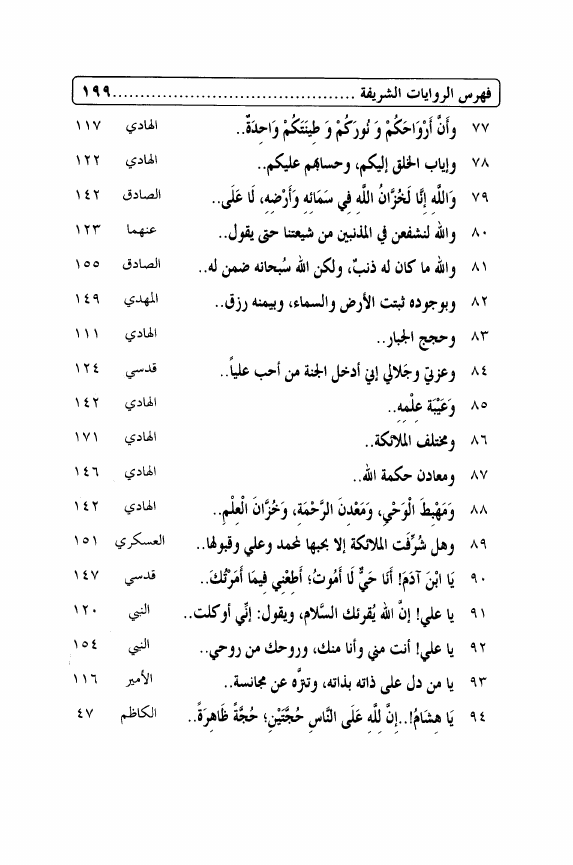 فهرس الروايات الشريفة ............................................. ١٩٩
٧٧ وأَنَّ أَرْوَاحَكُمْ وَ نُورَكُمْ وَ طِينَتَكُمْ وَاحِدَةٌ.. الهادي ١١٧
٧٨ وإياب الخلق إليكم، وحسابهم عليكم.. الهادي ١٢٢
٧٩ وَاللَّهِ إِنَّا لَخُزَّانُ اللَّهِ فِي سَمَائِهِ وَأَرْضِهِ، لَا عَلَى.. الصادق ١٤٢
٨٠ والله لنشفعن في المذنبين من شيعتنا حتى يقول.. عنهما ١٢٣
٨١ والله ما كان له ذنبٌ، ولكن الله سُبحانه ضمن له.. الصادق ١٥٥
٨٢ وبوجوده ثبتت الأرض والسماء، وبيمنه رزق.. المهدي ١٤٩
٨٣ وحجج الجبار.. الهادي ١١١
٨٤ وعزتي وجَلالي إني أدخل الجنة من أحب علياً.. قدسي ١٢٤
٨٥ وَعَيْبَة عِلْمِهِ.. الهادي ١٤٢
٨٦ ومختلف الملائكة.. الهادي ١٧١
٨٧ ومعادن حكمة الله.. الهادي ١٤٦
٨٨ وَمَهْبِطَ الْوَحْيِ، وَمَعْدِنَ الرَّحْمَةِ، وَخُزَّانَ الْعِلْمِ.. الهادي ١٤٢
٨٩ وهل شُرِّفَت الملائكة إلا بحبها لمحمد وعلي وقبولها.. العسكري ١٥١
٩٠ يَا ابْنَ آدَمَ! أَنَا حَيٌّ لَا أَمُوتُ؛ أَطِعْنِي فِيمَا أَمَرْتُكَ.. قدسي ١٤٧
٩١ يا علي! إنَّ الله يُقرئك السَّلام، ويقول: إنِّي أوكلت.. النبي ١٢٠
٩٢ يا علي! أنت مني وأنا منك، وروحك من روحي.. النبي ١٥٤
٩٣ يا من دل على ذاته بذاته، وتنزَّه عن مجانسة.. الأمير ١١٦
٩٤ يَا هِشَامُ!..إِنَّ لِلَّهِ عَلَى النَّاسِ حُجَّتَيْنِ؛ حُجَّةً ظَاهِرَةً.. الكاظم ٤٧